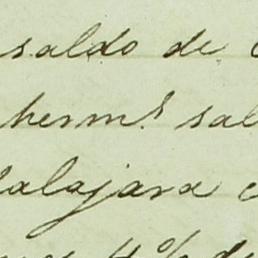 saldo de
herm.s sal
alajara
4% de